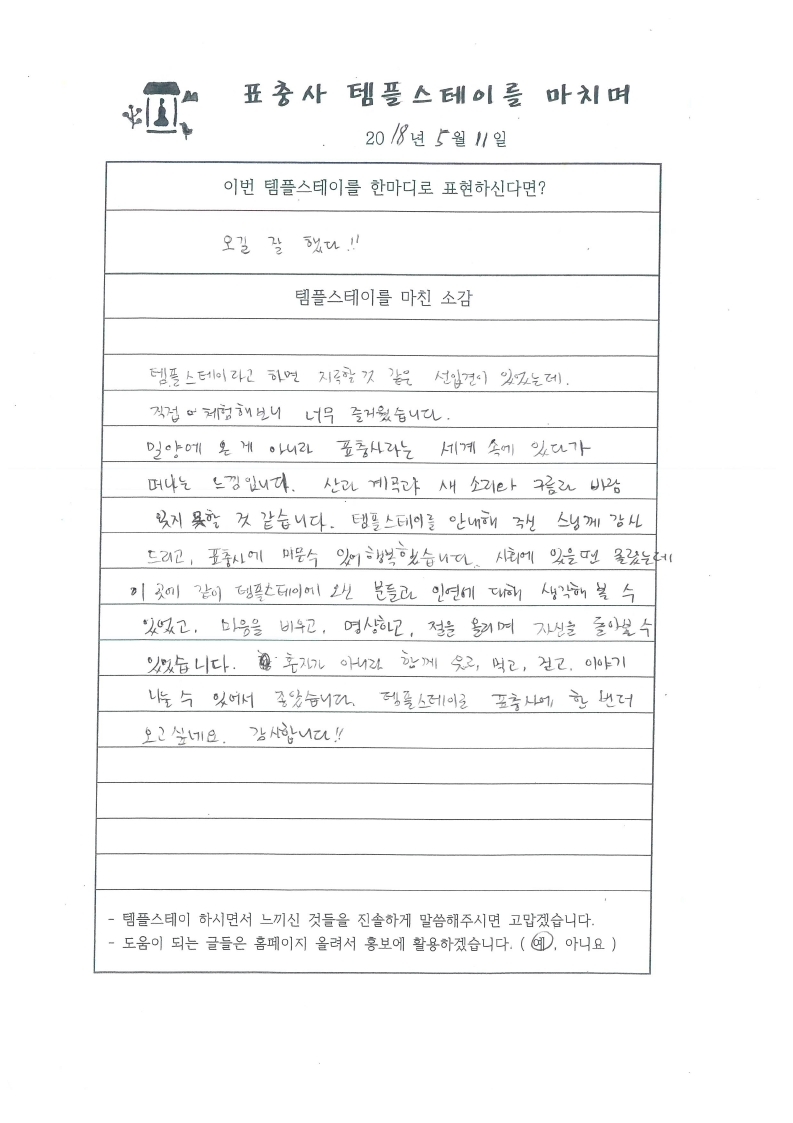 표충사 템플스테이를 마치며
2018년 5월 11일
이번 템플스테이를 한마디로 표현하신다면?
오길 잘 했다!!
템플스테이를 마친 소감
템플스테이라고 하면 지루할것 같은 선입견이 있었는데.
직접 체험해보니 너무 즐거웠습니다.
밀양에 온 게 아니라 표충사라는 세계 속에 있다가
떠나는 느낌입니다. 산과 계곡과 새 소리와 구름과 바람
잊지 못할 것 같습니다. 템플스테이를 안내해 주신 스님께 감사
드리고, 표충사에 머물수 있어 행복했습니다. 사회에 있을땐 몰랐는데
이 곳에 같이 템플스테이에 오신 분들과 인연에 대해 생각해 볼 수
있었고, 마음을 비우고, 명상하고, 절을 올리며 자신을 돌아볼 수
있었습니다. 혼자가 아니라 함께 웃고, 먹고, 걷고, 이야기
나눌 수 있어서 좋았습니다. 템플스테이로 표충사에 한 번더
오고싶네요. 감사합니다!!
- 템플스테이 하시면서 느끼신 것들을 진솔하게 말씀해주시면 고맙겠습니다.
- 도움이 되는 글들은 홈페이지 올려서 홍보에 활용하겠습니다. ( 예, 아니요 )